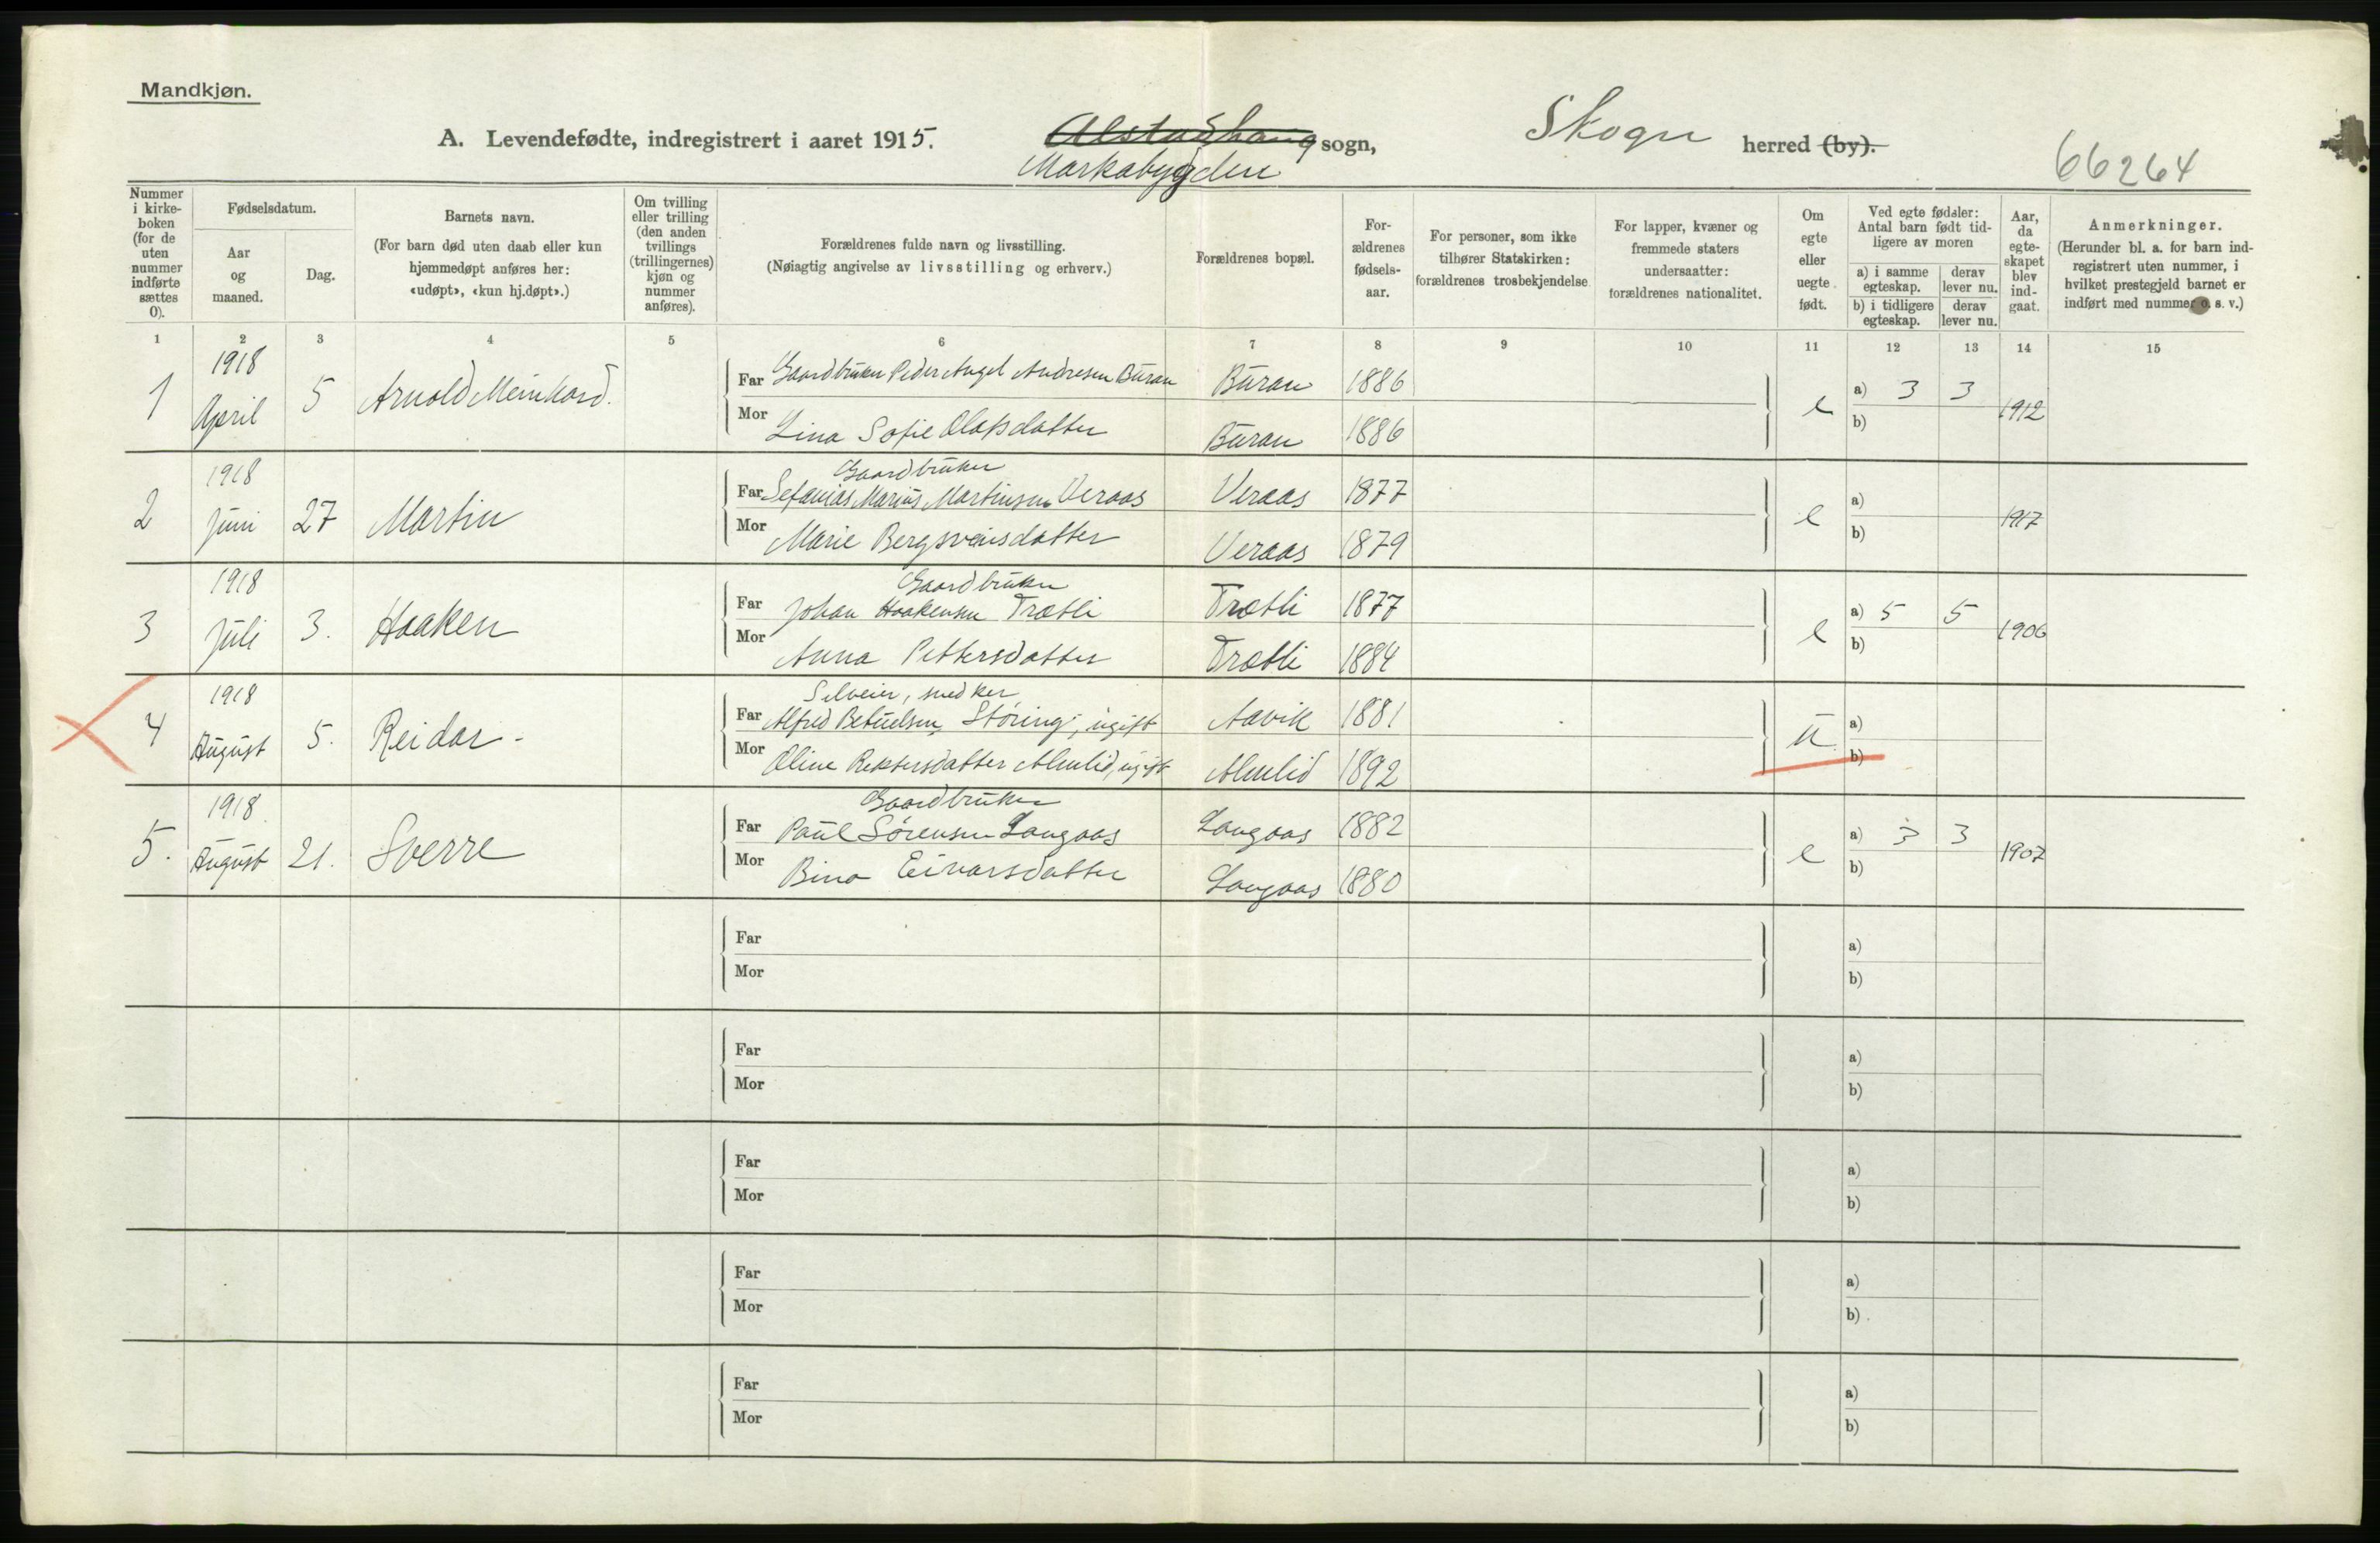 Mandkjøn.
A. Levendefødte, indregistrert i aaret 1915. Alstadhaug sogn, Skogn herred (by).
Markabygden
66264
Nummer i kirke-boken (for de uten nummer indførte sættes 0).
Fødselsdatum.
Aar og maaned.
Dag.
Barnets navn.
(For barn død uten daab eller kun hjemmedøpt anføres her: «udøpt», «kun hj.døpt».)
Om tvilling eller trilling (den anden tvillings (trillingernes) kjøn og nummer anføres).
Forældrenes fulde navn og livsstilling.
(Nøiagtig angivelse av livsstilling og erhverv.)
Forældrenes bopæl.
For-ældrenes fødsels-aar.
For personer, som ikke tilhører Statskirken: forældrenes trosbekjendelse.
For lapper, kvæner og fremmede staters undersaatter: forældrenes nationalitet.
Om egte eller uegte født.
Ved egte fødsler: Antal barn født tid-ligere av moren
a) i samme egteskap.
derav lever nu.
b) i tidligere egteskap.
derav lever nu.
Aar, da egte-skapet blev ind-gaat.
Anmerkninger.
(Herunder bl. a. for barn ind-registrert uten nummer, i hvilket prestegjeld barnet er indført med nummer o. s. v.)
1 2 3 4 5 6 7 8 9 10 11 12 13 14 15
1 1918 April 5 Arnold Meinhard.
Far Gaardbruker Peder Angel Andresen Buran Buran 1886
Mor Lina Sofie Olafsdatter Buran 1886
e a) 3 3 1912
b)
2 1918 Juni 27 Martin
Gaardbruker
Far Sefanias Marius Martinsen Veraas Veraas 1877
Mor Marie Bergsveinsdatter Veraas 1879
e a) 1917
b)
3 1918 Juli 3. Haaken
Gaardbruker
Far Johan Haakensen Trætli Trætli 1877
Mor Anna Pettersdatter Trætli 1884
e a) 5 5 1906
b)
4 1918 August 5. Reidar -
Selveier, snedker
Far Alfred Betuelsen Støring, ugift Aavik 1881
Mor Oline Almlid, ugift Almlid 1892
u a)
b)
5. 1918 August 21. Sverre
Gaardbruker
Far Paul Sørensen Langaas Langaas 1882
Mor Bina Eivarsdatter Langaas 1880
e a) 3 3 1907
b)
Far a)
Mor b)
Far a)
Mor b)
Far a)
Mor b)
Far a)
Mor b)
Far a)
Mor b)